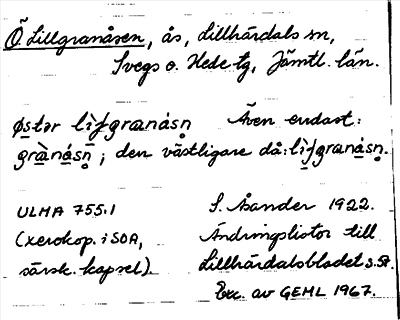 Ö. Lillgranåsen, ås, Lillhärdals sn,
Svegs o. Hede tg, Jämtl. län.
østər lìʃgranásn̥ Även endast:
grànásn̥; den västligare då: lìʃgranásn̥.
ULMA 755:1 S. Åsander 1922.
(xerokop. i SOA, Ändringslistor till
särsk. kapsel). Lillhärdalsbladet s.
Exc. av GEHL 1967.